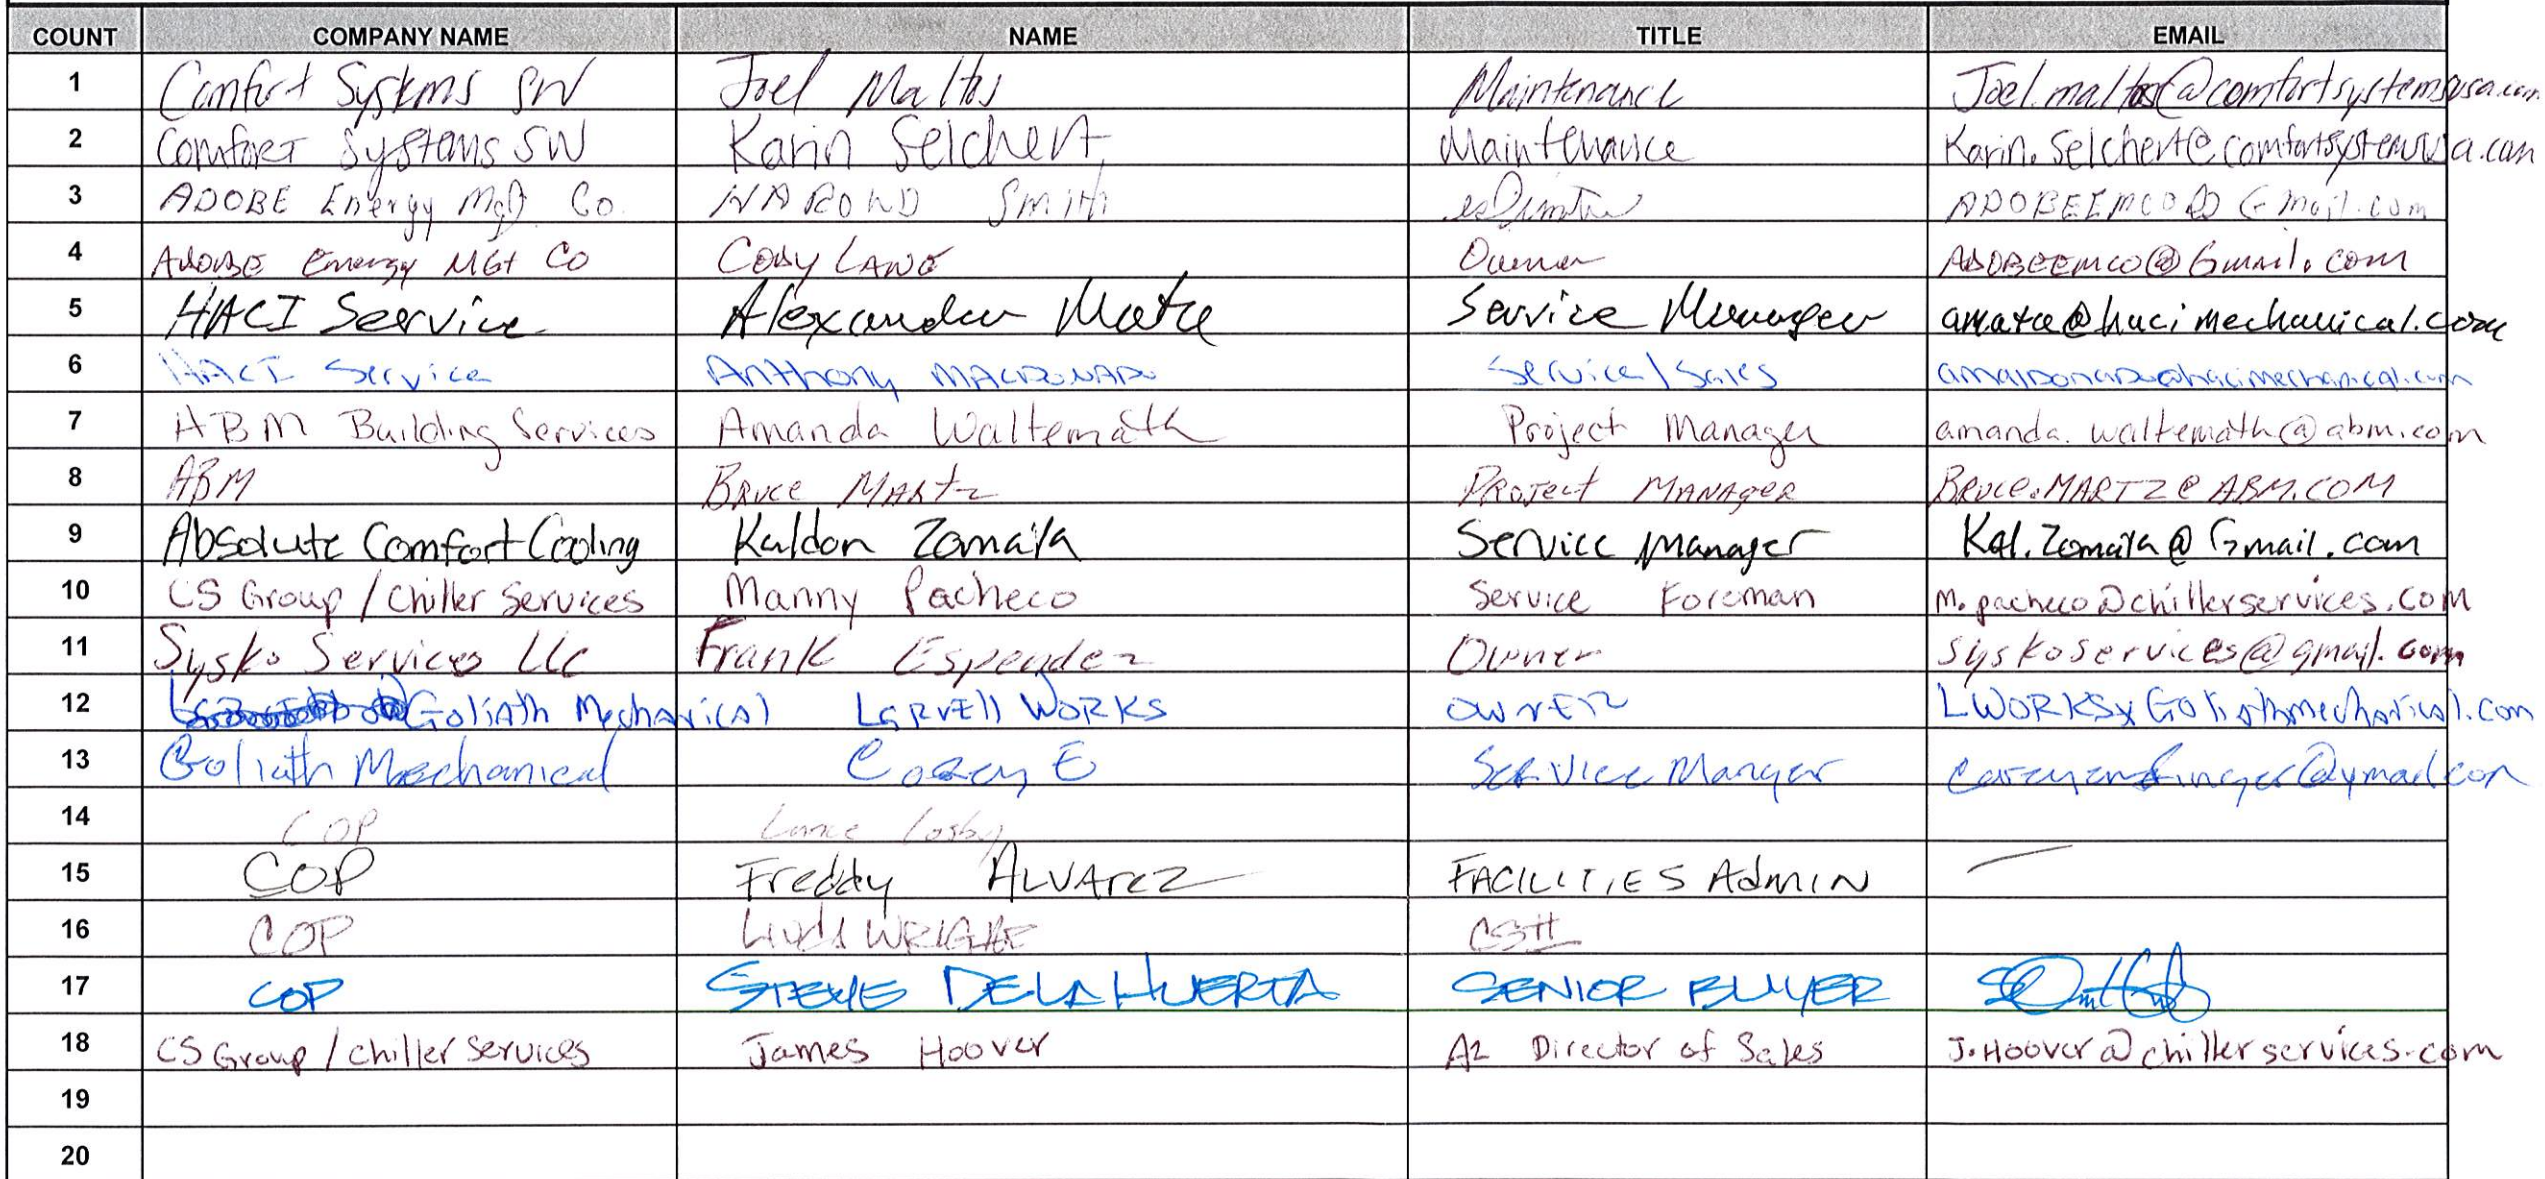 COUNT COMPANY NAME NAME TITLE EMAIL
1 Comfort Systems SW Joel Maltos Maintenance Joel.maltos@comfortsystemsusa.com
2 Comfort Systems SW Karin Selchert Maintenance Karin.Selchert@comfortsystemsusa.com
3 ADOBE Energy Mgt Co. Smith ADOBEEMCO@Gmail.com
4 ADOBE Energy MGt Co Cody LANE Owner ADOBEEMCO@Gmail.com
5 HACI Service Alexander Mata Service Manager amata@hacimechanical.com
6 HACI Service Anthony Service/Sales amaldonado@hacimechanical.com
7 ABM Building Services Amanda Waltemath Project Manager amanda.waltemath@abm.com
8 ABM Bruce MARtz PROJECT MANAGER BRUCE.MARTZ@ABM.COM
9 Absolute Comfort Cooling Kaldon Zomaya Service Manager Kal.Zomaya@Gmail.com
10 CS Group / Chiller Services Manny Pacheco Service Foreman M.pacheco@chillerservices.com
11 Sysko Services LLC Frank Owner syskoservices@gmail.com
12 Goliath Mechanical LaRvEll WORKS OWNER
13 Goliath Mechanical Corey E Service Manger
14 COP Lance Cosby
15 COP Freddy ALVArez FACILITIES AdmIN
16 COP WRIGHT
17 COP STEVE DELA HUERTA SENIOR BUYER
18 CS Group / Chiller Services James Hoover AZ Director of Sales J.Hoover@chillerservices.com
19
20